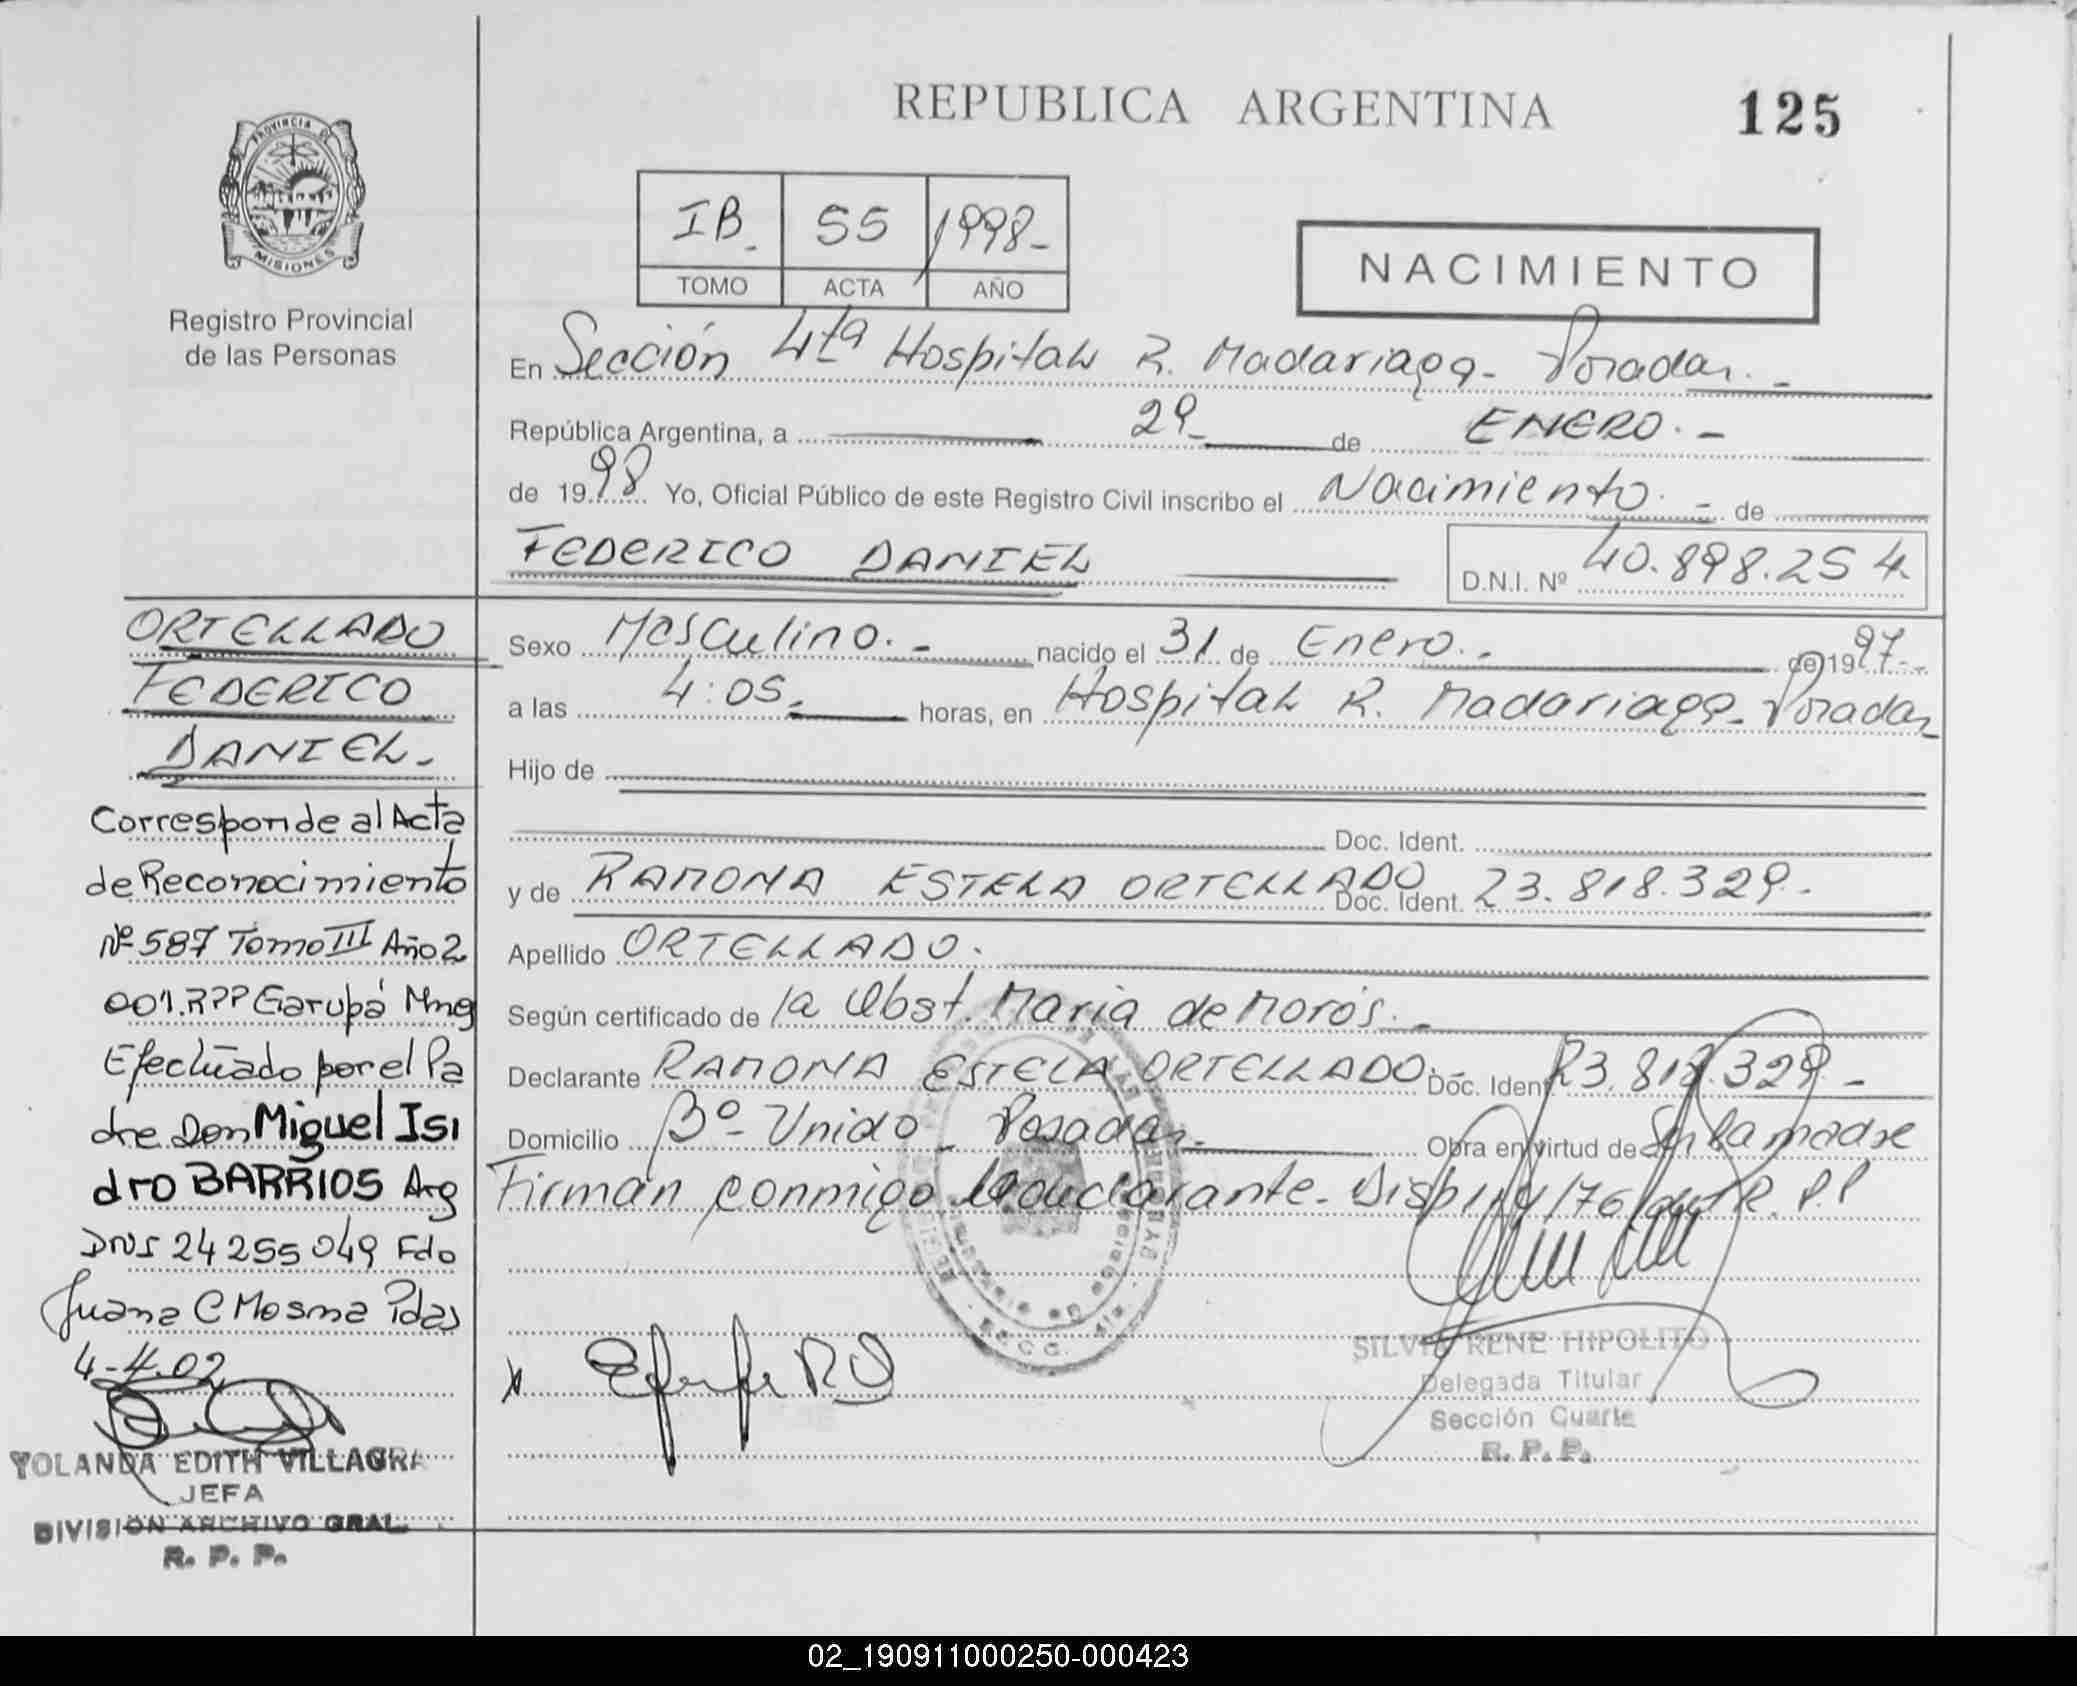 REPUBLICA ARGENTINA
125
PROVINCIA DE
MISIONES
Registro Provincial
de las Personas
IB. 55 1998-
TOMO ACTA AÑO
NACIMIENTO
En Sección 4ta Hospital R. Madariaga - Posadas. -
República Argentina, a 29 - de ENERO. -
de 1998 Yo, Oficial Público de este Registro Civil inscribo el Nacimiento. - de
FEDERICO DANIEL
D.N.I. Nº 40.898.254.
ORTELLADO
FEDERICO
DANIEL.-
Corresponde al Acta
de Reconocimiento
Nº 587 Tomo III Año 2
001. RPP Garupá Mnes
Efectuado por el Pa
dre Don Miguel Isi
dro BARRIOS Arg
DNI 24255049 Fdo
Juana C Mosma Pdas
4-4.02
YOLANDA EDITH VILLAGRA
JEFA
DIVISION ARCHIVO GRAL.
R. P. P.
Sexo Masculino. - nacido el 31 de Enero. - de 1997.-
a las 4:05. horas, en Hospital R. Madariaga - Posadas
Hijo de
Doc. Ident.
y de RAMONA ESTELA ORTELLADO Doc. Ident. 23.818.329.-
Apellido ORTELLADO.
Según certificado de la Obst. Maria de Moros. -
Declarante RAMONA ESTELA ORTELLADO. Doc. Ident. 23.818.329 -
Domicilio Bº Unido - Posadas. - Obra en virtud de Ser la madre
Firman conmigo declarante - R. P. P
SILVIA RENE HIPOLITO
Delegada Titular
Sección Cuarta
R. P. P.
02_190911000250-000423